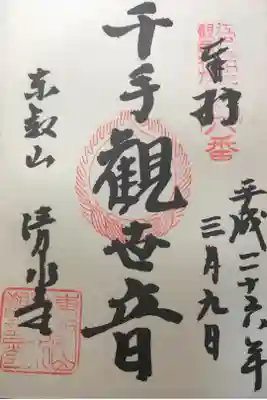 奉拝
平成二十六年
三月九日
千手観世音
東叡山
清水寺
六番